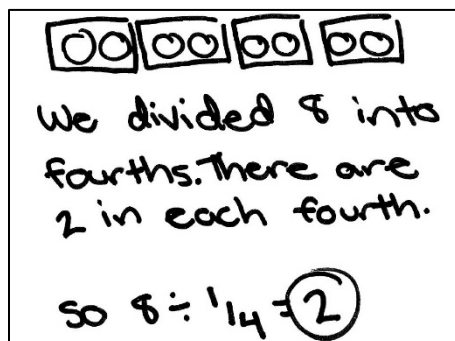 We divided 8 into
fourths. There are
2 in each fourth.
so 8 ÷ 1/4 = 2